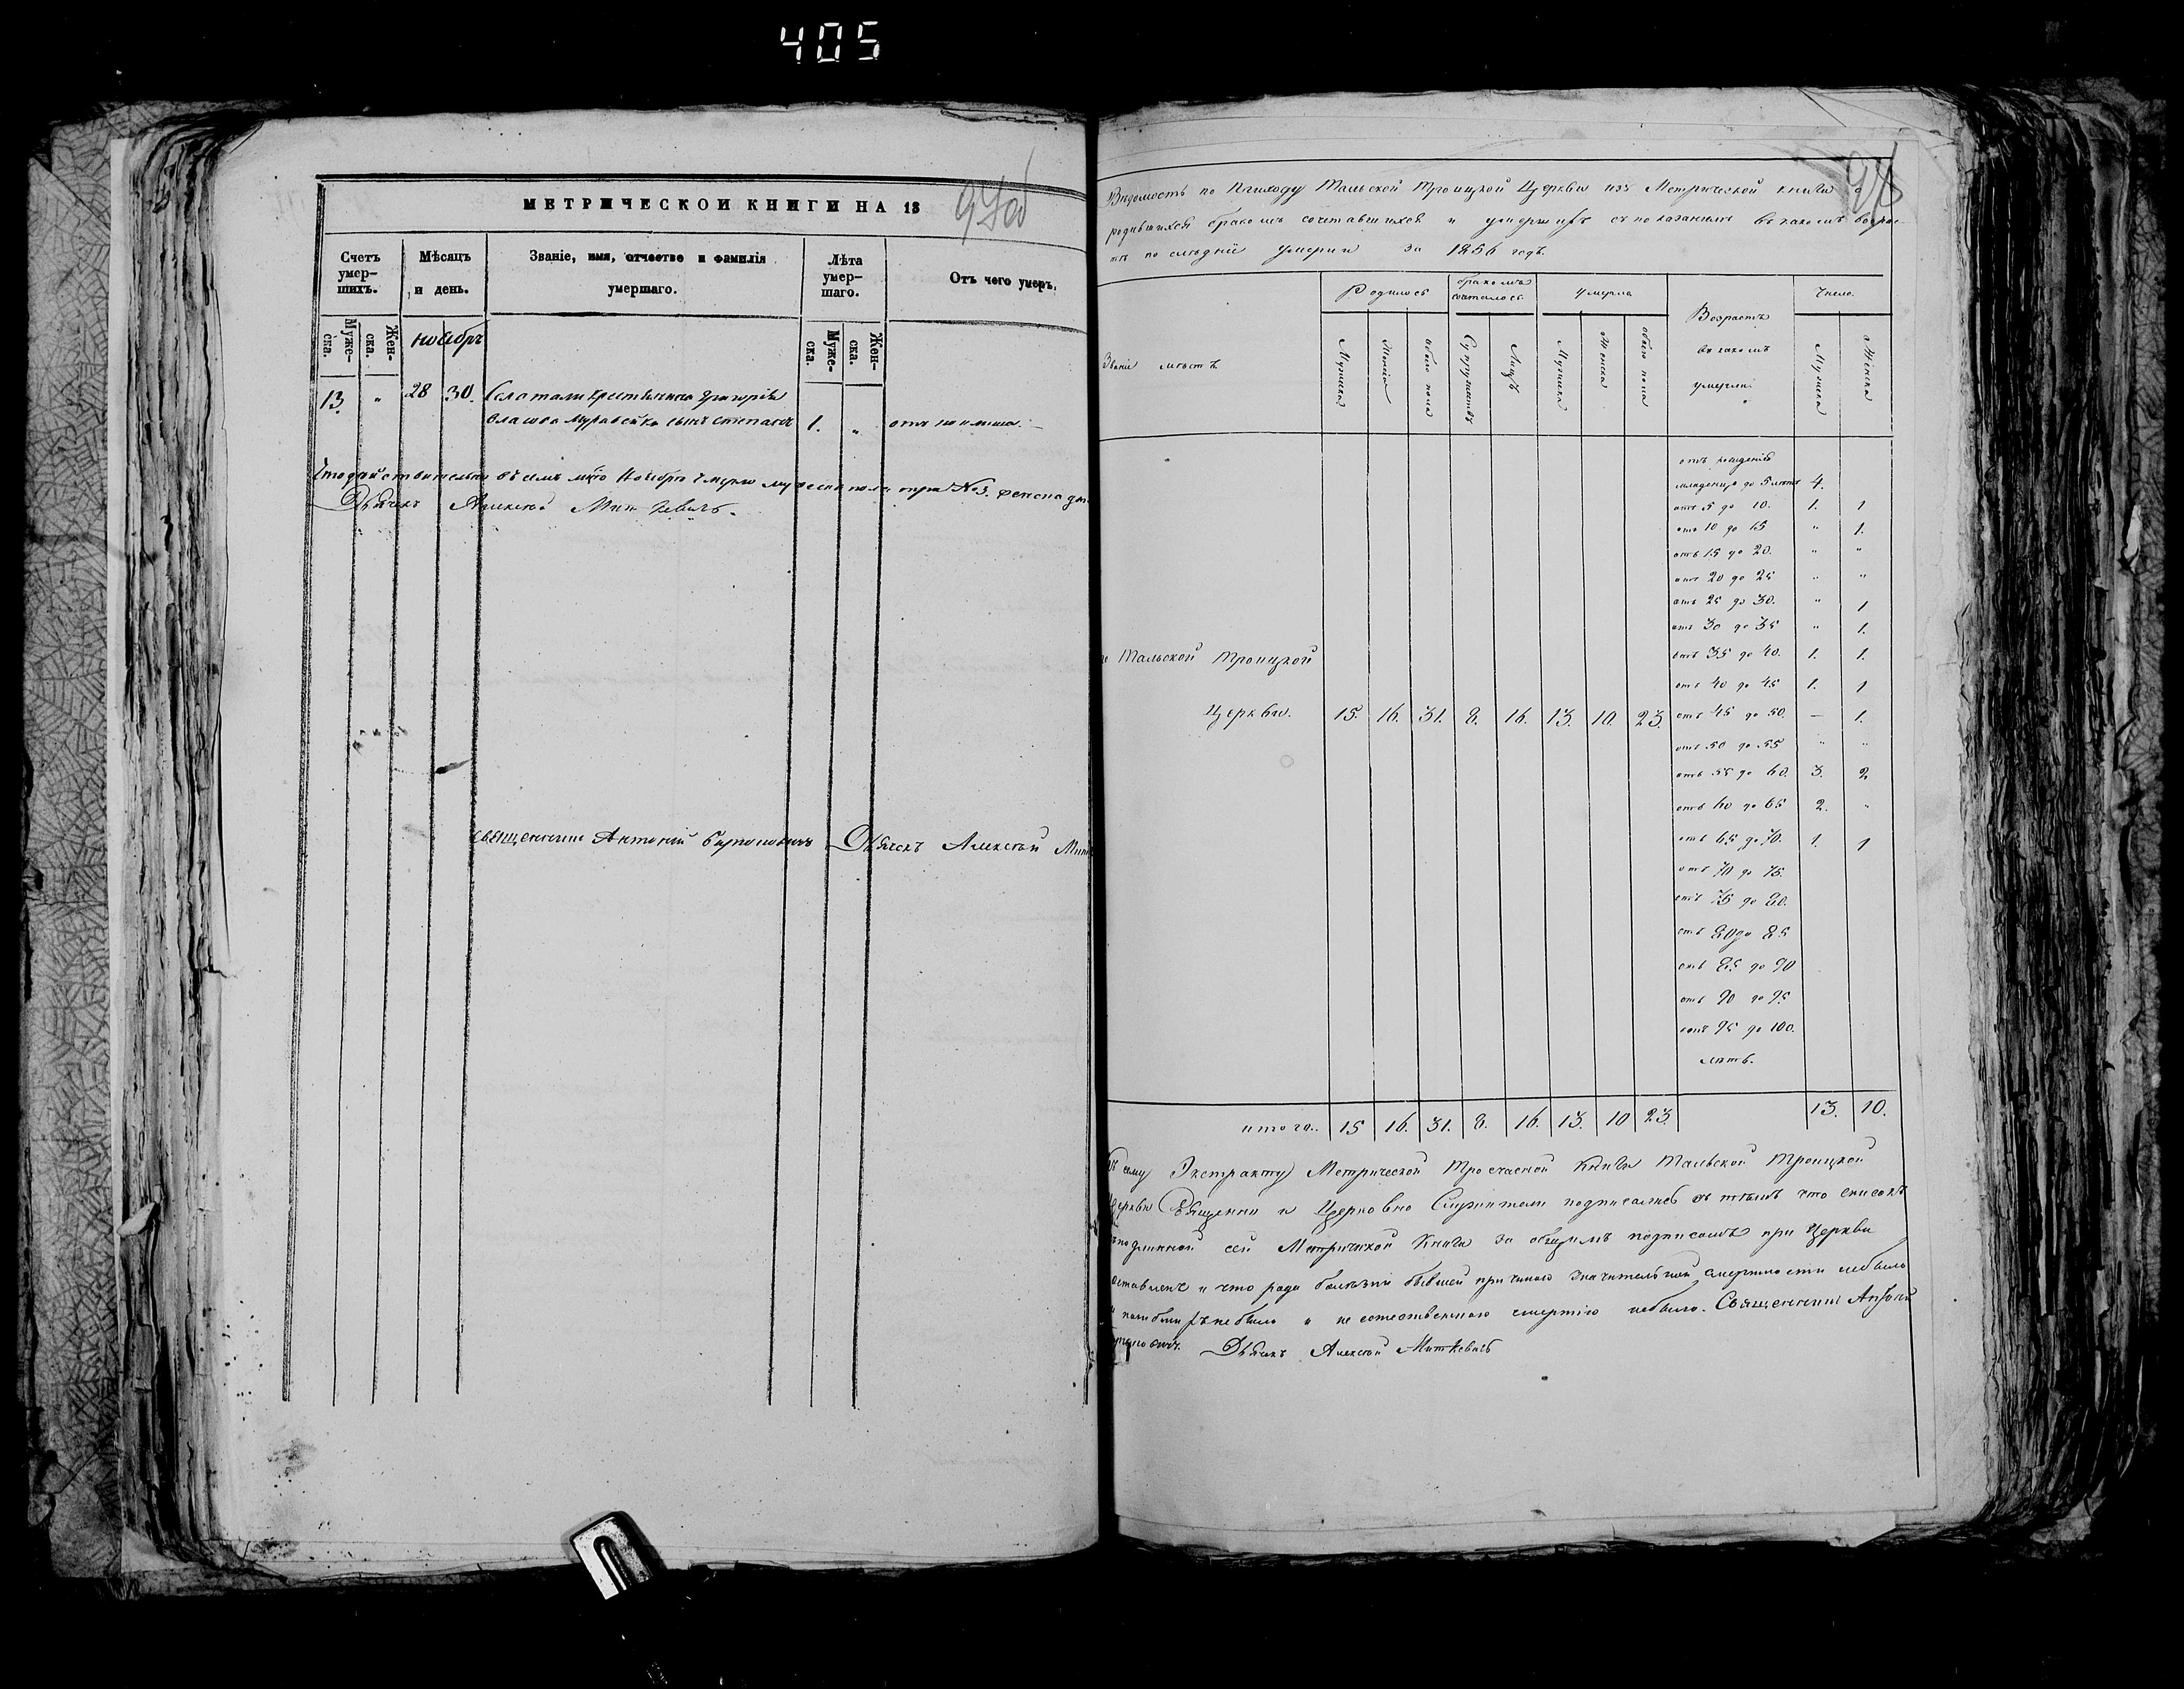 405
МЕТРИЧЕСКОЙ КНИГИ НА 18
97об
Счетъ умер-шихъ. Мѣсяцъ и день. Званіе, имя, отчество и фамилія умершаго. Лѣта умер-шаго. Отъ чего умеръ.
Муже-ска. Жен-ска. Ноябрь Муже-ска. Жен-ска.
13. " 28 30. Села Тали крестьянина Григорія
Власова Муравейка сынъ Степанъ 1. " отъ
Что действительно въ семъ Ноябрѣ умерло мужеска пола три №3. женска
Дьячекъ Алексѣй Миткевичъ.
Священникъ Антоній Дьячекъ Алексѣй
98
Вѣдомость по Приходу Тальской Троицкой Церкви изъ Метрической книги о
родившихся бракомъ сочетавшихся и умершихъ съ показаніемъ въ какомъ возрас-
тѣ послѣдніе умерли за 1856 годъ.
Званіе мѣстъ Родилось бракомъ сочеталось Умерло Возрастъ въ какомъ умерли Число.
Мужска Женска обоего пола Супружествъ Лицъ Мужска Женска обоего пола Мужска Женска
отъ рожденія
младенца до 5 летъ 4.
отъ 5 до 10. 1. 1
отъ 10 до 15 " 1.
отъ 15 до 20. " "
отъ 20 до 25 " "
отъ 25 до 30. " 1
отъ 30 до 35 " 1.
Тальской Троицкой отъ 35 до 40. 1. 1.
отъ 40 до 45 1. 1
Церкви. 15. 16. 31. 8. 16. 13. 10. 23. отъ 45 до 50. — 1.
отъ 50 до 55 " "
отъ 55 до 60. 3. 2
отъ 60 до 65 2. "
отъ 65 до 70. 1. 1
отъ 70 до 75.
отъ 75 до 80.
отъ 80 до 85
отъ 85 до 90
отъ 90 до 95
отъ 95 до 100.
летъ.
итого.. 15 16. 31. 8. 16. 13. 10 23. 13. 10.
Къ сему Экстракту Метрической Троечасной Книги Тальской Троицкой
Церкви Священно и Церковно Служители подписались въ томъ что списокъ
подлинной сей Метрической Книги за общимъ подписомъ при Церкви
оставленъ и что рода болезни бывшей причиною значительной смертности небыло
небыло и не естественною смертію небыло. Священникъ Антоній
Дьячекъ Алексѣй Миткевичъ